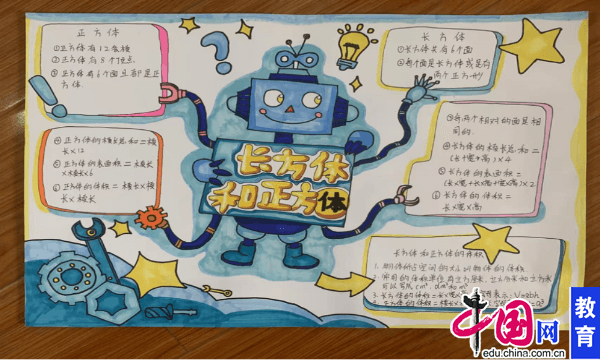 正方体
①正方体有12条棱
②正方体有8个顶点
③正方体有6个面且都是正
方体
④正方体的棱长总和=棱
长×12
⑤正方体的表面积=棱长
×棱长×6
⑥正方体的体积=棱长×棱
长×棱长
长方体
和正方体
长方体
①长方体共有6个面
②每个面是长方体或是有
两个正方形
③每两个相对的面是相
同的.
④长方体的棱长总和=
(长+宽+高)×4
⑤长方体的表面积=
(长×宽+长×高+宽×高)×2
⑥长方体的体积=
长×宽×高
长方体和正方体的体积
1.物体所占空间的大小叫物体的体积
2.常用的体积单位有立方厘米、立方分米和立方米
可以写成cm³、dm³和m³
3.长方体的体积=长×宽×高
中国网
edu.china.com.cn
教育